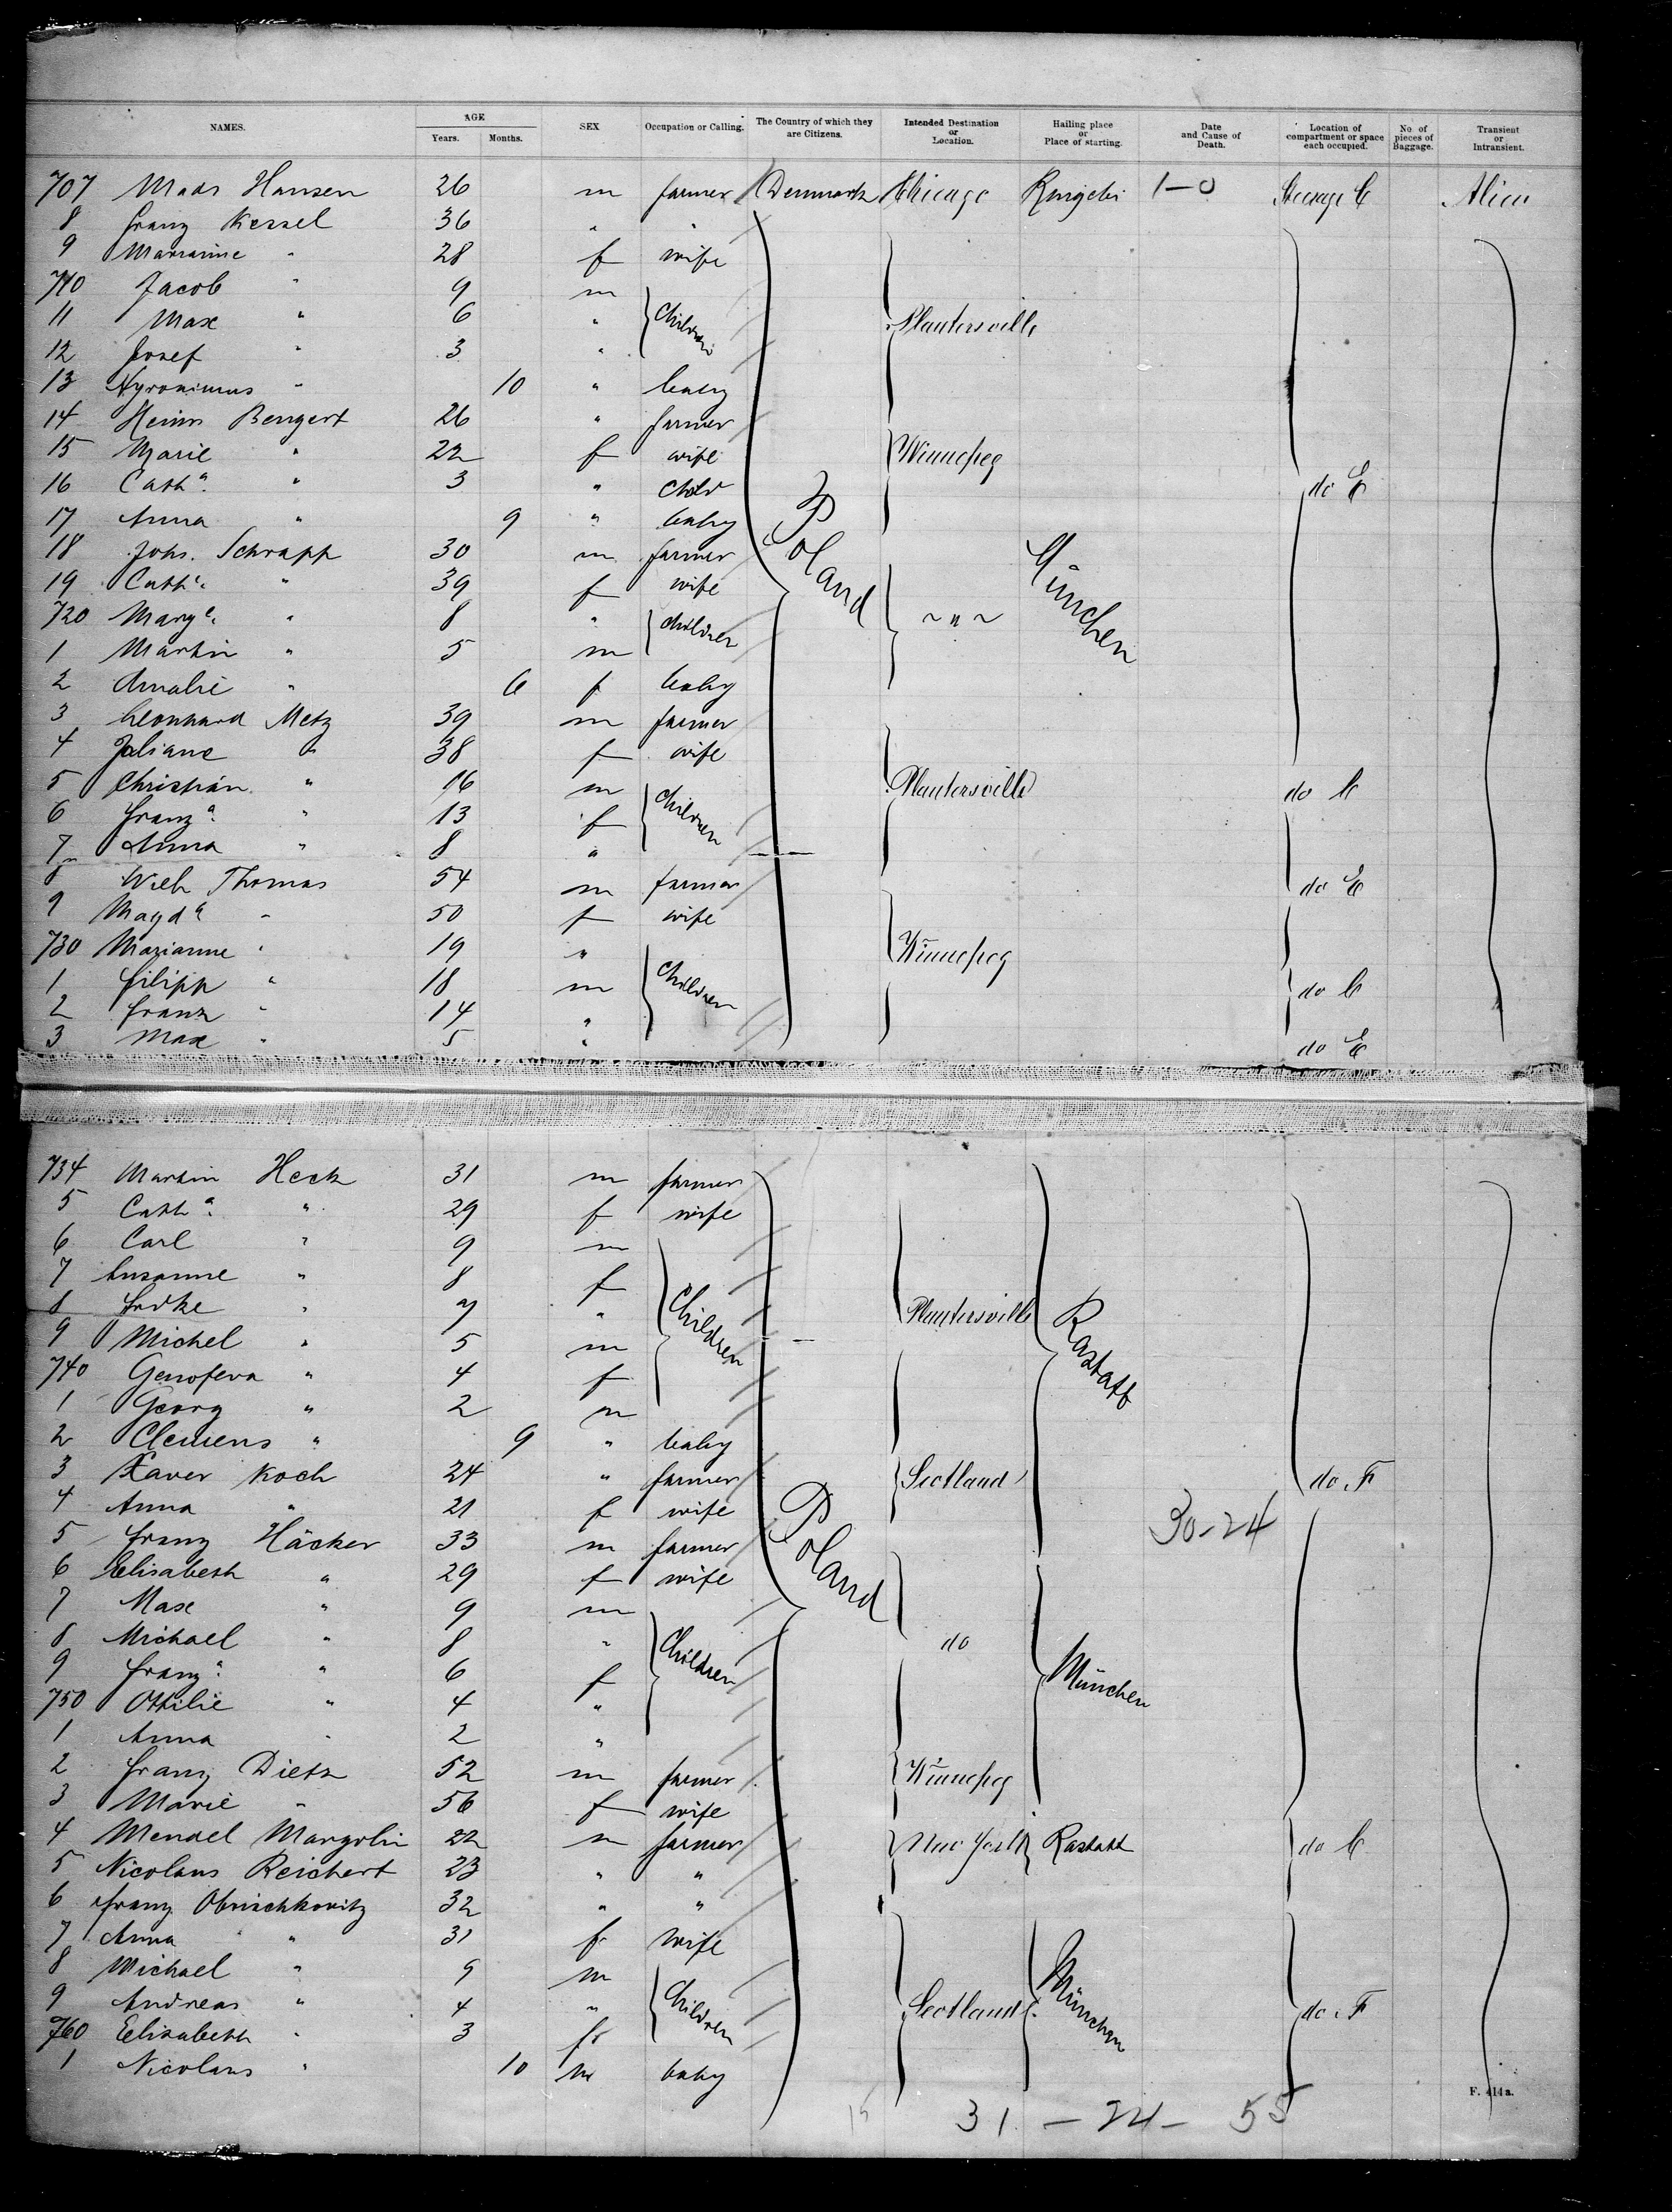 NAMES. AGE Years. Months. SEX Occupation or Calling. The Country of which they are Citizens. Intended Destination or Location. Hailing place or Place of starting. Date and Cause of Death. Location of compartment or space each occupied. No. of pieces of Baggage. Transient or Intransient.
707 Mads Hansen 26 m farmer Denmark Chicago 1-0 Steerage C
8 Franz Kessel 36 " "
9 Marianne " 28 f wife
710 Jacob " 9 m
11 Max " 6 " Children Plantersville
12 Josef " 3 "
13 Hyronimus " 10 " baby
14 Heinr Bengert 26 " farmer
15 Marie " 22 f wife Winnepeg
16 Cath.a " 3 " child do E
17 Anna " 9 " baby Poland
18 Johs. Schrapp 30 m farmer München
19 Cath.a " 39 f wife
720 Marg.a " 8 " children ~ " ~
1 Martin " 5 m
2 Amalie " 6 f baby
3 Leonhard Metz 39 m farmer
4 Juliane " 38 f wife
5 Christian " 16 m Children Plantersville do C
6 Franz.a " 13 f
7 Anna " 8 "
8 Wilh Thomas 54 m farmer do E
9 Magd.a " 50 f wife
730 Marianne " 19 " Winnepeg
1 Filipp " 18 m Children do C
2 Franz " 14 "
3 Max " 5 " do E
734 Martin Heck 31 m farmer
5 Cath.a " 29 f wife
6 Carl " 9 m
7 Susanne " 8 f
8 Frdke " 7 " Children Plantersville Rastatt
9 Michel " 5 m
740 Genofeva " 4 f
1 Georg " 2 m
2 Clemens " 9 " baby
3 Xaver Koch 24 " farmer Scotland do F
4 Anna " 21 f wife Poland 30-24
5 Franz Häcker 33 m farmer
6 Elisabeth " 29 f wife
7 Max " 9 m
8 Michael " 8 " Children do
9 Franz.a " 6 f München
750 Ottilie " 4 "
1 Anna " 2 "
2 Franz Dietz 52 m farmer Winnepeg
3 Marie " 56 f wife
4 Mendel Margolin 22 m farmer New York Rastatt do C
5 Nicolaus Reichert 23 " "
6 Franz 32 " "
7 Anna " 31 f wife
8 Michael " 9 m München
9 Andreas " 4 " Children Scotland do F
760 Elisabeth " 3 f
1 Nicolaus " 10 m baby
F. 414a.
31 - 24 - 55